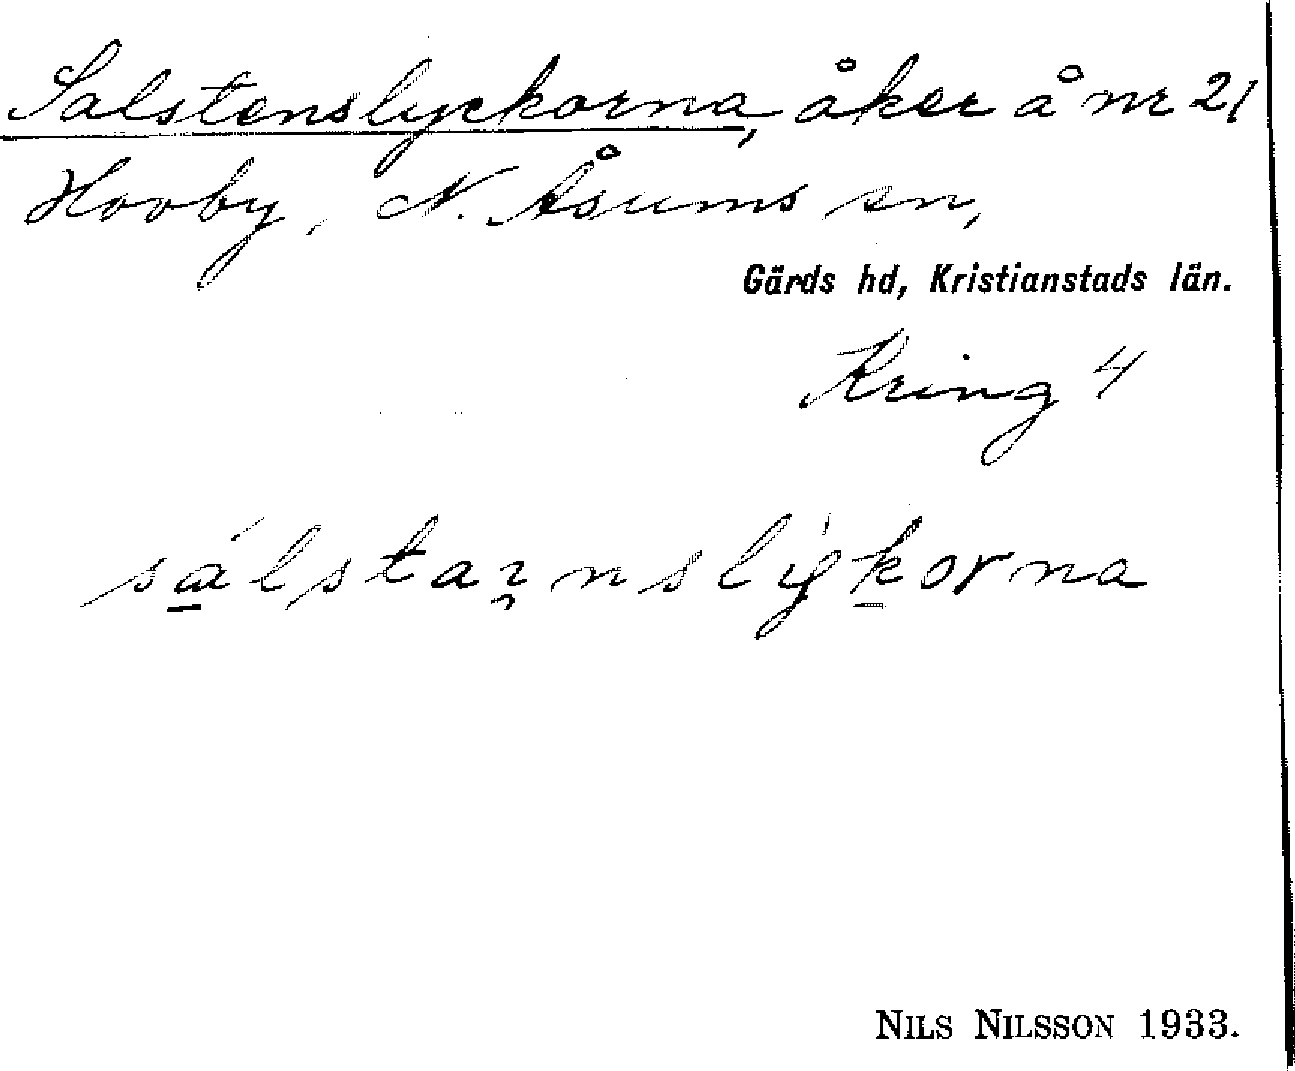 Salstenslyckorna, åker å nr 21
Hovby, N. Åsums sn,
Gärds hd, Kristianstads län.
Kring 4
NILS NILSSON 1933.